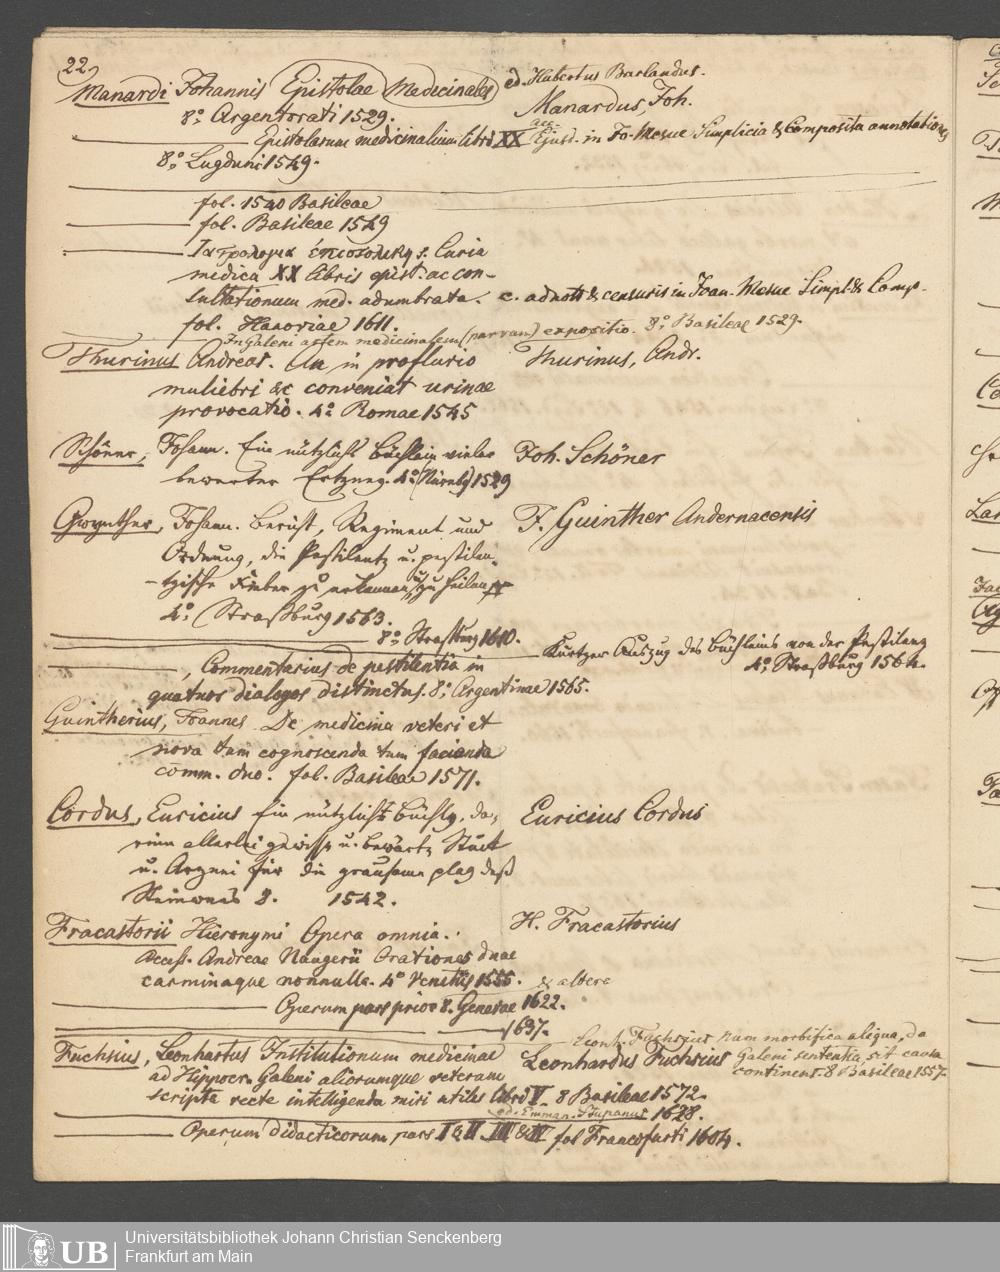 22)
Manardi Johannis Epistolae Medicinales ed. Hubertus Barlandus.
Manardus, Joh.
8o. Argentorati 1529.
Epistolarum medicinalium libri XX acc. Ejusd. in Jo. Mesue Simplicia & Composita annotationes
8o. Lugduni 1549.
fol. 1540 Basileae
fol. Basileae 1549
Ιατρολογια επιστολικη s. Curia
medica XX libris epist. ac con-
sultationum med. adumbrata. c. adnott & censuris in Joan. Mesue Simpl. & Comp.
fol. Hanoviae 1611.
In Galeni artem medicinalem (parvam) expositio. 8o. Basileae 1529.
Thurinus Andreas. An in profluvio
Thurinus, Andr.
muliebri &c conveniat urinae
provocatio. 4o Romae 1545
Schöner, Johann. Ein nützlichs Büchlein vieler
Joh. Schöner
bewerter Ertzney. 4o (Nürnbg) 1529
Gwynther, Johann. Bericht, Regiment und
J. Guinther Andernacensis
Ordnung, die Pestilentz u. pestilen-
tzische Fieber zu erkennen u. zu heilen
4o. Straßburg 1563.
8o. Straßburg 1610.
Kurtzer Auszug des Büchleins von der Pestilenz
4o. Straßburg 1564.
, Commentarius de pestilentia in
quatuor dialogos distinctus. 8o. Argentinae 1565.
Guintherius, Joannes. De medicina veteri et
nova tam cognoscenda tum facienda
comm. duo. fol. Basileae 1571.
Cordus, Euricius Ein nützlichs Büchlg. da-
Euricius Cordus
rinn allerlei gewisse u. bewärte Stück
u. Arznei für die grausame plag deß
Steinwees 8. 1542.
Fracastorii Hieronymi Opera omnia.
H. Fracastorius
Access. Andreae Naugerii Orationes duae
carminaque nonnulla. 4o Venetiis 1555.
Operum pars prior & altera 8. Genevae 1622.
1637.
Leonh. Fuchsius num morbifica aliqua, de
Galeni sententia sit causa
continens. 8 Basileae 1557.
Fuchsius, Leonhartus Institutionum medicinae
Leonhardus Fuchsius
ad Hippocr. Galeni aliorumque veterum
scripta recte intelligenda miri utiles libri V. 8 Basileae 1572.
ed. Emman. Stupanus 1628.
Operum didacticorum pars I & II. III & IV fol Francofurti 1604.
UB
Universitätsbibliothek Johann Christian Senckenberg
Frankfurt am Main